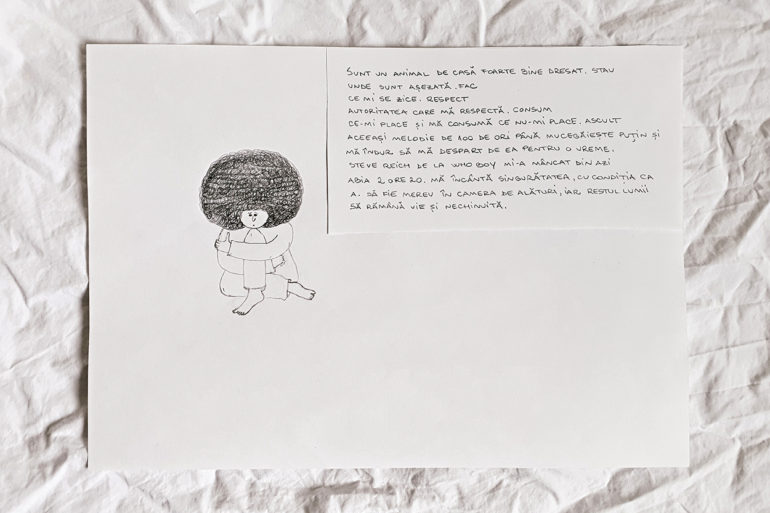 SUNT UN ANIMAL DE CASĂ FOARTE BINE DRESAT. STAU
UNDE SUNT AȘEZATĂ. FAC
CE MI SE ZICE. RESPECT
AUTORITATEA CARE MĂ RESPECTĂ. CONSUM
CE-MI PLACE ȘI MĂ CONSUMĂ CE NU-MI PLACE. ASCULT
ACEEAȘI MELODIE DE 100 DE ORI PÂNĂ MUCEGĂIEȘTE PUȚIN ȘI
MĂ ÎNDUR SĂ MĂ DESPART DE EA PENTRU O VREME.
STEVE REICH DE LA WHO BOY MI-A MÂNCAT DIN AZI
ABIA 2 ORE 20. MĂ ÎNCÂNTĂ SINGURĂTATEA, CU CONDIȚIA CA
A. SĂ FIE MEREU ÎN CAMERA DE ALĂTURI, IAR RESTUL LUMII
SĂ RĂMÂNĂ VIE ȘI NECHINUITĂ.